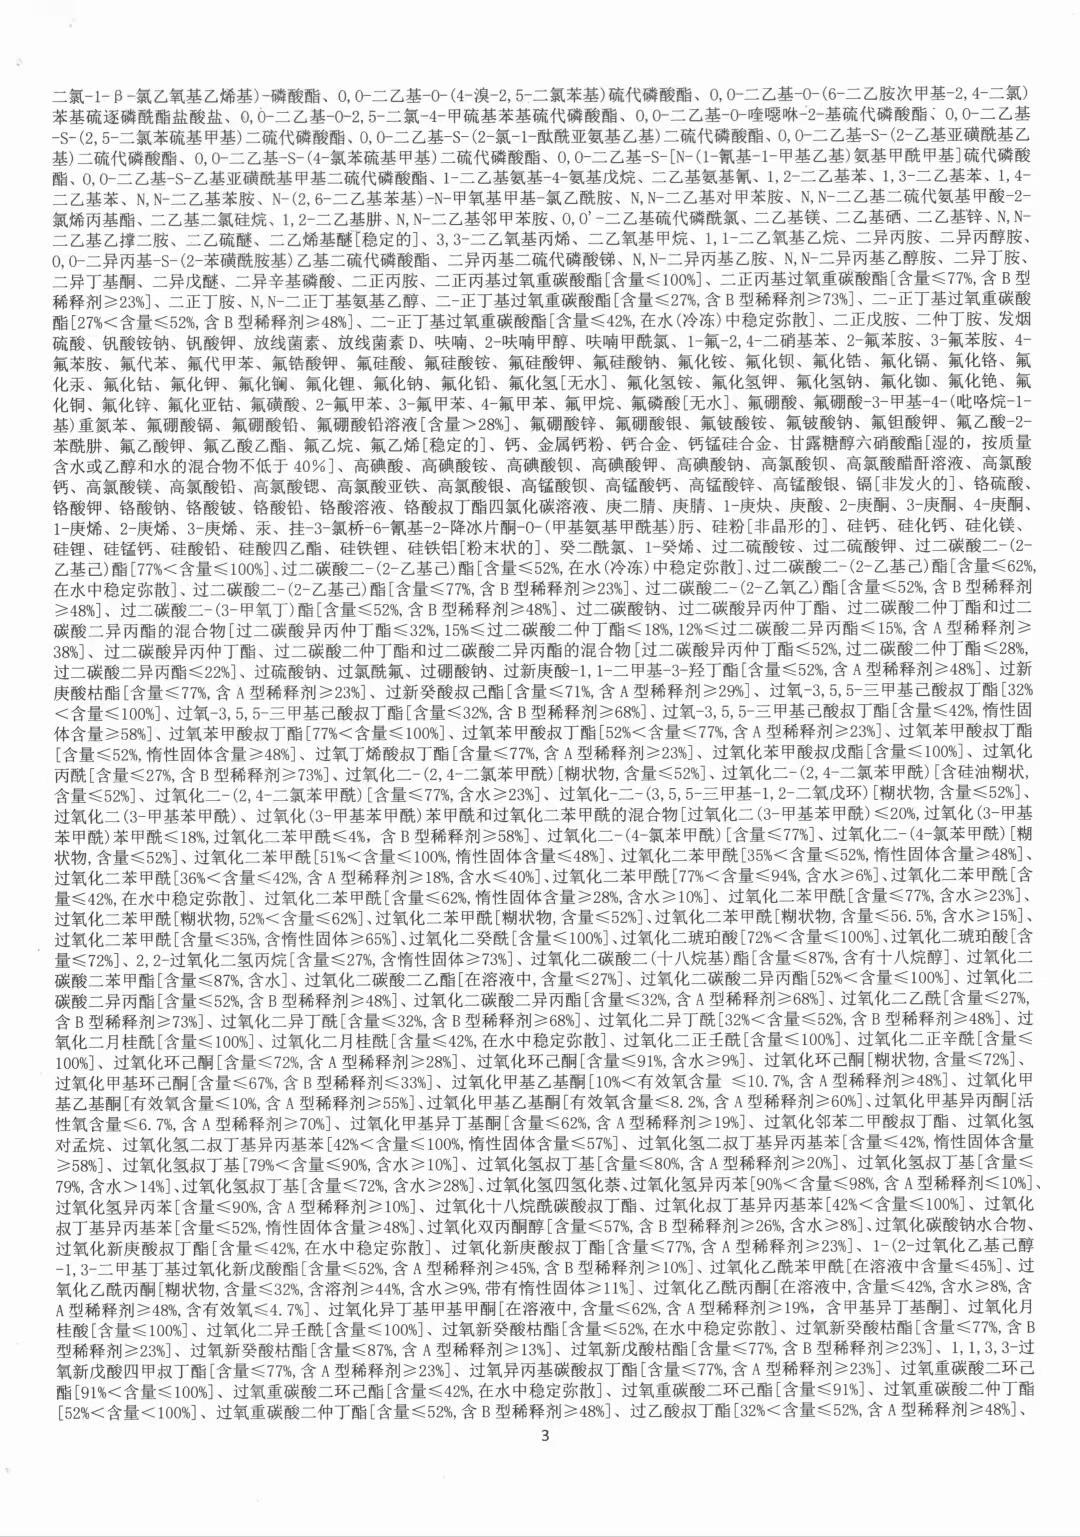 二氯-1-β-氯乙氧基乙烯基)-磷酸酯、O,O-二乙基-O-(4-溴-2,5-二氯苯基)硫代磷酸酯、O,O-二乙基-O-(6-二乙胺次甲基-2,4-二氯)
苯基硫逐磷酰酯盐酸盐、O,O-二乙基-O-2,5-二氯-4-甲硫基苯基硫代磷酸酯、O,O-二乙基-O-喹噁啉-2-基硫代磷酸酯、O,O-二乙基
-S-(2,5-二氯苯硫基甲基)二硫代磷酸酯、O,O-二乙基-S-(2-氯-1-酞酰亚氨基乙基)二硫代磷酸酯、O,O-二乙基-S-(2-乙基亚磺酰基乙
基)二硫代磷酸酯、O,O-二乙基-S-(4-氯苯硫基甲基)二硫代磷酸酯、O,O-二乙基-S-[N-(1-氰基-1-甲基乙基)氨基甲酰甲基]硫代磷酸
酯、O,O-二乙基-S-乙基亚磺酰基甲基二硫代磷酸酯、1-二乙基氨基-4-氨基戊烷、二乙基氨基氰、1,2-二乙基苯、1,3-二乙基苯、1,4-
二乙基苯、N,N-二乙基苯胺、N-(2,6-二乙基苯基)-N-甲氧基甲基-氯乙酰胺、N,N-二乙基对甲苯胺、N,N-二乙基二硫代氨基甲酸-2-
氯烯丙基酯、二乙基二氯硅烷、1,2-二乙基肼、N,N-二乙基邻甲苯胺、O,O'-二乙基硫代磷酰氯、二乙基镁、二乙基硒、二乙基锌、N,N-
二乙基乙撑二胺、二乙硫醚、二乙烯基醚[稳定的]、3,3-二乙氧基丙烯、二乙氧基甲烷、1,1-二乙氧基乙烷、二异丙胺、二异丙醇胺、
O,O-二异丙基-S-(2-苯磺酰胺基)乙基二硫代磷酸酯、二异丙基二硫代磷酸锑、N,N-二异丙基乙胺、N,N-二异丙基乙醇胺、二异丁胺、
二异丁基酮、二异戊醚、二异辛基磷酸、二正丙胺、二正丙基过氧重碳酸酯[含量≤100%]、二正丙基过氧重碳酸酯[含量≤77%,含 B 型
稀释剂≥23%]、二正丁胺、N,N-二正丁基氨基乙醇、二-正丁基过氧重碳酸酯[含量≤27%,含 B 型稀释剂≥73%]、二-正丁基过氧重碳酸
酯[27%＜含量≤52%,含 B 型稀释剂≥48%]、二-正丁基过氧重碳酸酯[含量≤42%,在水(冷冻)中稳定弥散]、二正戊胺、二仲丁胺、发烟
硫酸、钒酸铵钠、钒酸钾、放线菌素、放线菌素 D、呋喃、2-呋喃甲醇、呋喃甲酰氯、1-氟-2,4-二硝基苯、2-氟苯胺、3-氟苯胺、4-
氟苯胺、氟代苯、氟代甲苯、氟锆酸钾、氟硅酸、氟硅酸铵、氟硅酸钾、氟硅酸钠、氟化铵、氟化钡、氟化锆、氟化镉、氟化铬、氟
化汞、氟化钴、氟化钾、氟化镧、氟化锂、氟化钠、氟化铅、氟化氢[无水]、氟化氢铵、氟化氢钾、氟化氢钠、氟化铷、氟化铯、氟
化铜、氟化锌、氟化亚钴、氟磺酸、2-氟甲苯、3-氟甲苯、4-氟甲苯、氟甲烷、氟磷酸[无水]、氟硼酸、氟硼酸-3-甲基-4-(吡咯烷-1-
基)重氮苯、氟硼酸镉、氟硼酸铅、氟硼酸铅溶液[含量＞28%]、氟硼酸锌、氟硼酸银、氟铍酸铵、氟铍酸钠、氟钽酸钾、氟乙酸-2-
苯酰肼、氟乙酸钾、氟乙酸乙酯、氟乙烷、氟乙烯[稳定的]、钙、金属钙粉、钙合金、钙锰硅合金、甘露糖醇六硝酸酯[湿的，按质量
含水或乙醇和水的混合物不低于 40%]、高碘酸、高碘酸铵、高碘酸钡、高碘酸钾、高碘酸钠、高氯酸钡、高氯酸醋酐溶液、高氯酸
钙、高氯酸镁、高氯酸铅、高氯酸锶、高氯酸亚铁、高氯酸银、高锰酸钡、高锰酸钙、高锰酸锌、高锰酸银、镉[非发火的]、铬硫酸、
铬酸钾、铬酸钠、铬酸铍、铬酸铅、铬酸溶液、铬酸叔丁酯四氯化碳溶液、庚二腈、庚腈、1-庚炔、庚酸、2-庚酮、3-庚酮、4-庚酮、
1-庚烯、2-庚烯、3-庚烯、汞、挂-3-氯桥-6-氰基-2-降冰片酮-O-(甲基氨基甲酰基)肟、硅粉[非晶形的]、硅钙、硅化钙、硅化镁、
硅锂、硅锰钙、硅酸铅、硅酸四乙酯、硅铁锂、硅铁铝[粉末状的]、癸二酰氯、1-癸烯、过二硫酸铵、过二硫酸钾、过二碳酸二-(2-
乙基己)酯[77%＜含量≤100%]、过二碳酸二-(2-乙基己)酯[含量≤52%,在水(冷冻)中稳定弥散]、过二碳酸二-(2-乙基己)酯[含量≤62%,
在水中稳定弥散]、过二碳酸二-(2-乙基己)酯[含量≤77%,含 B 型稀释剂≥23%]、过二碳酸二-(2-乙氧乙)酯[含量≤52%,含 B 型稀释剂
≥48%]、过二碳酸二-(3-甲氧丁)酯[含量≤52%,含 B 型稀释剂≥48%]、过二碳酸钠、过二碳酸异丙仲丁酯、过二碳酸二仲丁酯和过二
碳酸二异丙酯的混合物[过二碳酸异丙仲丁酯≤32%,15%≤过二碳酸二仲丁酯≤18%,12%≤过二碳酸二异丙酯≤15%,含 A 型稀释剂≥
38%]、过二碳酸异丙仲丁酯、过二碳酸二仲丁酯和过二碳酸二异丙酯的混合物[过二碳酸异丙仲丁酯≤52%,过二碳酸二仲丁酯≤28%,
过二碳酸二异丙酯≤22%]、过硫酸钠、过氯酰氟、过硼酸钠、过新庚酸-1,1-二甲基-3-羟丁酯[含量≤52%,含 A 型稀释剂≥48%]、过新
庚酸枯酯[含量≤77%,含 A 型稀释剂≥23%]、过新癸酸叔己酯[含量≤71%,含 A 型稀释剂≥29%]、过氧-3,5,5-三甲基己酸叔丁酯[32%
＜含量≤100%]、过氧-3,5,5-三甲基己酸叔丁酯[含量≤32%,含 B 型稀释剂≥68%]、过氧-3,5,5-三甲基己酸叔丁酯[含量≤42%,惰性固
体含量≥58%]、过氧苯甲酸叔丁酯[77%＜含量≤100%]、过氧苯甲酸叔丁酯[52%＜含量≤77%,含 A 型稀释剂≥23%]、过氧苯甲酸叔丁酯
[含量≤52%,惰性固体含量≥48%]、过氧丁烯酸叔丁酯[含量≤77%,含 A 型稀释剂≥23%]、过氧化苯甲酸叔戊酯[含量≤100%]、过氧化
丙酰[含量≤27%,含 B 型稀释剂≥73%]、过氧化二-(2,4-二氯苯甲酰)[糊状物,含量≤52%]、过氧化二-(2,4-二氯苯甲酰)[含硅油糊状,
含量≤52%]、过氧化二-(2,4-二氯苯甲酰)[含量≤77%,含水≥23%]、过氧化-二-(3,5,5-三甲基-1,2-二氧戊环)[糊状物,含量≤52%]、
过氧化二(3-甲基苯甲酰)、过氧化(3-甲基苯甲酰)苯甲酰和过氧化二苯甲酰的混合物[过氧化二(3-甲基苯甲酰)≤20%,过氧化(3-甲基
苯甲酰)苯甲酰≤18%,过氧化二苯甲酰≤4%，含 B 型稀释剂≥58%]、过氧化二-(4-氯苯甲酰)[含量≤77%]、过氧化二-(4-氯苯甲酰)[糊
状物,含量≤52%]、过氧化二苯甲酰[51%＜含量≤100%,惰性固体含量≤48%]、过氧化二苯甲酰[35%＜含量≤52%,惰性固体含量≥48%]、
过氧化二苯甲酰[36%＜含量≤42%,含 A 型稀释剂≥18%,含水≤40%]、过氧化二苯甲酰[77%＜含量≤94%,含水≥6%]、过氧化二苯甲酰[含
量≤42%,在水中稳定弥散]、过氧化二苯甲酰[含量≤62%,惰性固体含量≥28%,含水≥10%]、过氧化二苯甲酰[含量≤77%,含水≥23%]、
过氧化二苯甲酰[糊状物,52%＜含量≤62%]、过氧化二苯甲酰[糊状物,含量≤52%]、过氧化二苯甲酰[糊状物,含量≤56.5%,含水≥15%]、
过氧化二苯甲酰[含量≤35%,含惰性固体≥65%]、过氧化二癸酰[含量≤100%]、过氧化二琥珀酸[72%＜含量≤100%]、过氧化二琥珀酸[含
量≤72%]、2,2-过氧化二氢丙烷[含量≤27%,含惰性固体≥73%]、过氧化二碳酸二(十八烷基)酯[含量≤87%,含有十八烷醇]、过氧化二
碳酸二苯甲酯[含量≤87%,含水]、过氧化二碳酸二乙酯[在溶液中,含量≤27%]、过氧化二碳酸二异丙酯[52%＜含量≤100%]、过氧化二
碳酸二异丙酯[含量≤52%,含 B 型稀释剂≥48%]、过氧化二碳酸二异丙酯[含量≤32%,含 A 型稀释剂≥68%]、过氧化二乙酰[含量≤27%,
含 B 型稀释剂≥73%]、过氧化二异丁酰[含量≤32%,含 B 型稀释剂≥68%]、过氧化二异丁酰[32%＜含量≤52%,含 B 型稀释剂≥48%]、过
氧化二月桂酰[含量≤100%]、过氧化二月桂酰[含量≤42%,在水中稳定弥散]、过氧化二正壬酰[含量≤100%]、过氧化二正辛酰[含量≤
100%]、过氧化环己酮[含量≤72%,含 A 型稀释剂≥28%]、过氧化环己酮[含量≤91%,含水≥9%]、过氧化环己酮[糊状物,含量≤72%]、
过氧化甲基环己酮[含量≤67%,含 B 型稀释剂≤33%]、过氧化甲基乙基酮[10%＜有效氧含量 ≤10.7%,含 A 型稀释剂≥48%]、过氧化甲
基乙基酮[有效氧含量≤10%,含 A 型稀释剂≥55%]、过氧化甲基乙基酮[有效氧含量≤8.2%,含 A 型稀释剂≥60%]、过氧化甲基异丙酮[活
性氧含量≤6.7%,含 A 型稀释剂≥70%]、过氧化甲基异丁基酮[含量≤62%,含 A 型稀释剂≥19%]、过氧化邻苯二甲酸叔丁酯、过氧化氢
对孟烷、过氧化氢二叔丁基异丙基苯[42%＜含量≤100%,惰性固体含量≤57%]、过氧化氢二叔丁基异丙基苯[含量≤42%,惰性固体含量
≥58%]、过氧化氢叔丁基[79%＜含量≤90%,含水≥10%]、过氧化氢叔丁基[含量≤80%,含 A 型稀释剂≥20%]、过氧化氢叔丁基[含量≤
79%,含水＞14%]、过氧化氢叔丁基[含量≤72%,含水≥28%]、过氧化氢四氢化萘、过氧化氢异丙苯[90%＜含量≤98%,含 A 型稀释剂≤10%]、
过氧化氢异丙苯[含量≤90%,含 A 型稀释剂≥10%]、过氧化十八烷酰碳酸叔丁酯、过氧化叔丁基异丙基苯[42%＜含量≤100%]、过氧化
叔丁基异丙基苯[含量≤52%,惰性固体含量≥48%]、过氧化双丙酮醇[含量≤57%,含 B 型稀释剂≥26%,含水≥8%]、过氧化碳酸钠水合物、
过氧化新庚酸叔丁酯[含量≤42%,在水中稳定弥散]、过氧化新庚酸叔丁酯[含量≤77%,含 A 型稀释剂≥23%]、1-(2-过氧化乙基己醇)
-1,3-二甲基丁基过氧化新戊酸酯[含量≤52%,含 A 型稀释剂≥45%,含 B 型稀释剂≥10%]、过氧化乙酰苯甲酰[在溶液中含量≤45%]、过
氧化乙酰丙酮[糊状物,含量≤32%,含溶剂≥44%,含水≥9%,带有惰性固体≥11%]、过氧化乙酰丙酮[在溶液中,含量≤42%,含水≥8%,含
A 型稀释剂≥48%,含有效氧≤4.7%]、过氧化异丁基甲基甲酮[在溶液中,含量≤62%,含 A 型稀释剂≥19%，含甲基异丁基酮]、过氧化月
桂酸[含量≤100%]、过氧化二异壬酰[含量≤100%]、过氧新癸酸枯酯[含量≤52%,在水中稳定弥散]、过氧新癸酸枯酯[含量≤77%,含 B
型稀释剂≥23%]、过氧新癸酸枯酯[含量≤87%,含 A 型稀释剂≥13%]、过氧新戊酸枯酯[含量≤77%,含 B 型稀释剂≥23%]、1,1,3,3-过
氧新戊酸四甲叔丁酯[含量≤77%,含 A 型稀释剂≥23%]、过氧异丙基碳酸叔丁酯[含量≤77%,含 A 型稀释剂≥23%]、过氧重碳酸二环己
酯[91%＜含量≤100%]、过氧重碳酸二环己酯[含量≤42%,在水中稳定弥散]、过氧重碳酸二环己酯[含量≤91%]、过氧重碳酸二仲丁酯
[52%＜含量＜100%]、过氧重碳酸二仲丁酯[含量≤52%,含 B 型稀释剂≥48%]、过乙酸叔丁酯[32%＜含量≤52%,含 A 型稀释剂≥48%]、
3